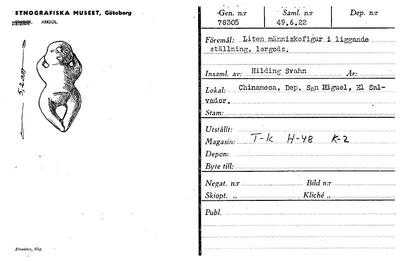 ETNOGRAFISKA MUSEET, Göteborg
ARKEOL.
5,2 cm
Gen. n:r
Saml. n:r
Dep. n:r
78305
49.6.22
Föremål: Liten människofigur i liggande
ställning, lergods.
Insaml. av: Hilding Svahn
Av:
Lokal: Chinameca, Dep. San Miguel, El Sal-
vador.
Stam:
Utställt:
Magasin: T-k H-48 K-2
Depon:
Byte till:
Negat. n:r
Bild n:r
Skiopt. „
Kliché „
Publ.